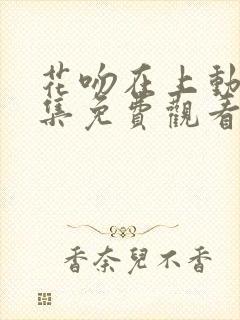 花吻在上動
集免費觀看
香奈兒不香